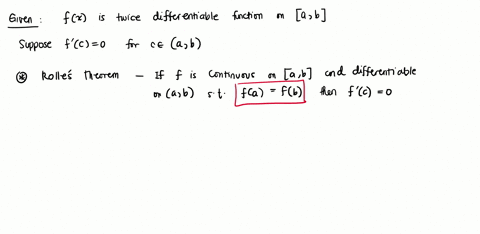 Given : f(x) is twice differentiable function on [a,b]
Suppose f'(c)=0 for c∈ (a,b)
⊛ Rolle's Theorem – If f is continuous on [a,b] and differentiable
on (a,b) s.t. f(a) = f(b) then f'(c) = 0